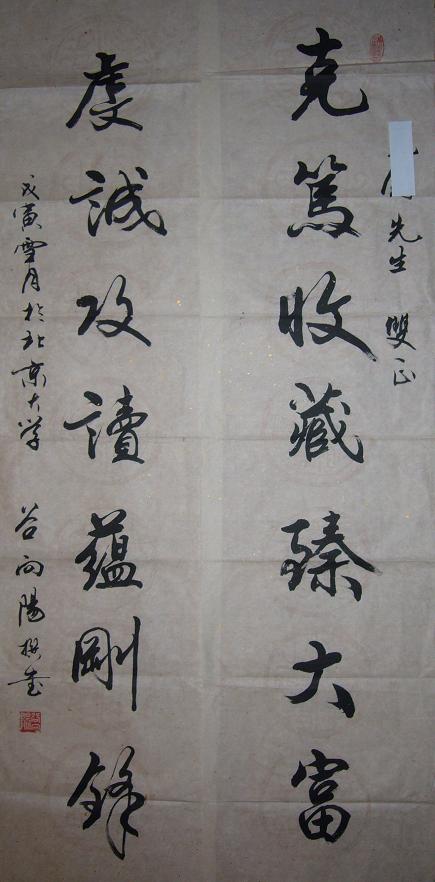 先生 雙正
克篤收藏臻大富
虔誠攻讀蘊剛鋒
戊寅雪月於北京大学 谷向陽撰書